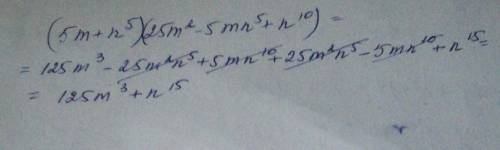 (5m+n⁵)(25m²-5mn⁵+n¹⁰)=
=125m³-25m²n⁵+5mn¹⁰+25m²n⁵-5mn¹⁰+n¹⁵=
=125m³+n¹⁵